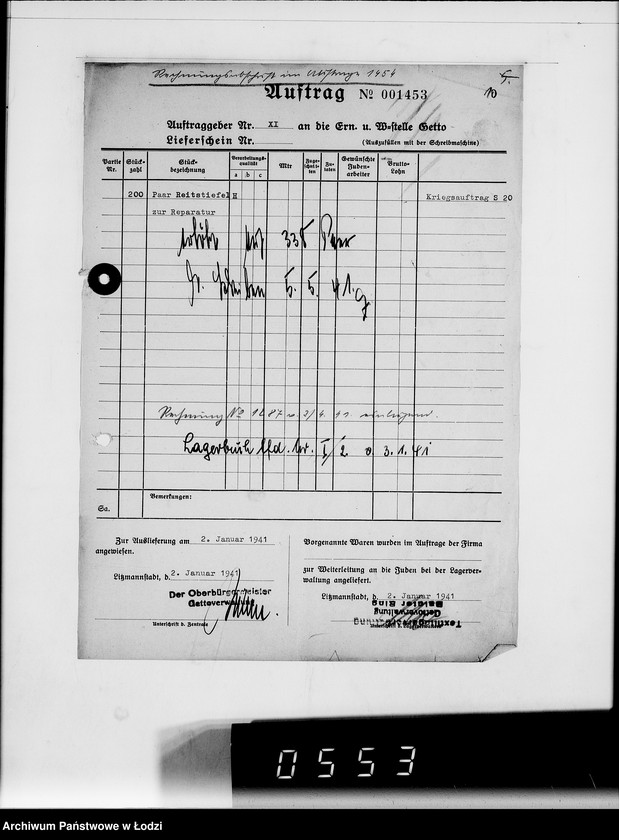 Rechnungsabschrift im Auftrage 1454
Auftrag № 001453
10
Auftraggeber Nr. XI an die Ern. u. W-stelle Getto
Lieferschein Nr. (Auszufüllen mit der Schreibmaschine)
Partie Nr. Stück-zahl Stück-bezeichnung Verarbeitungs-qualität a b c Mtr Zuge-schnit-ten Zu-taten Gewünschte Juden-arbeiter Brutto-Lohn
200 Paar Reitstiefel H Kriegsauftrag S 20
zur Reparatur
auf 338 Paar
5. 5. 41.
Rechnung № 1087 v. 3/4. 41
Lagerbuch lfd. Nr. I/2 v. 3.1.41
Bemerkungen:
Sa.
Zur Auslieferung am 2. Januar 1941
angewiesen.
Litzmannstadt, d. 2. Januar 1941
Der Oberbürgermeister
Gettoverwaltung
Unterschrift d. Zentrale
Vorgenannte Waren wurden im Auftrage der Firma
zur Weiterleitung an die Juden bei der Lagerver-
waltung angeliefert.
Litzmannstadt, d. 2. Januar 1941
Gettoverwaltung
0553
Archiwum Państwowe w Łodzi